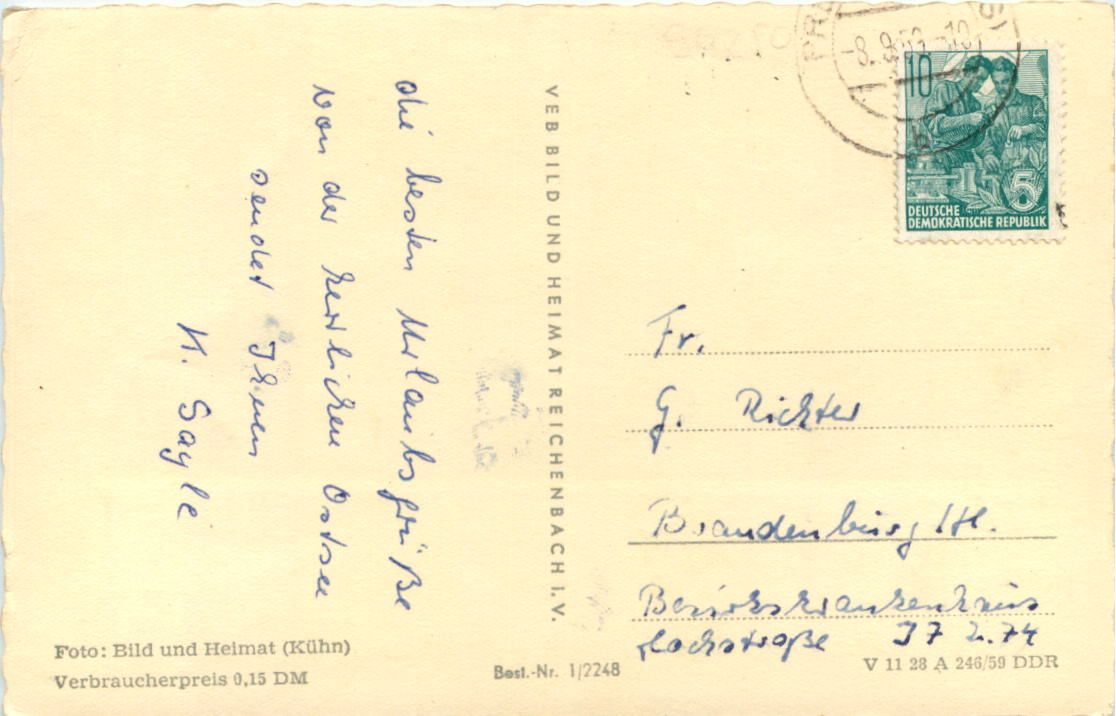 die besten Urlaubsgrüße
von der herlichen Ostsee
sendet Ihnen
K. Sayle
VEB BILD UND HEIMAT REICHENBACH I. V.
-8. 8. 59 -10
10
5
DEUTSCHE
DEMOKRATISCHE REPUBLIK
Fr.
G. Richter
Brandenburg /H.
Bezirkskrankenhaus
Hochstraße J7 Z.74
Foto: Bild und Heimat (Kühn)
Verbraucherpreis 0,15 DM
Best.-Nr. 1/2248
V 11 28 A 246/59 DDR